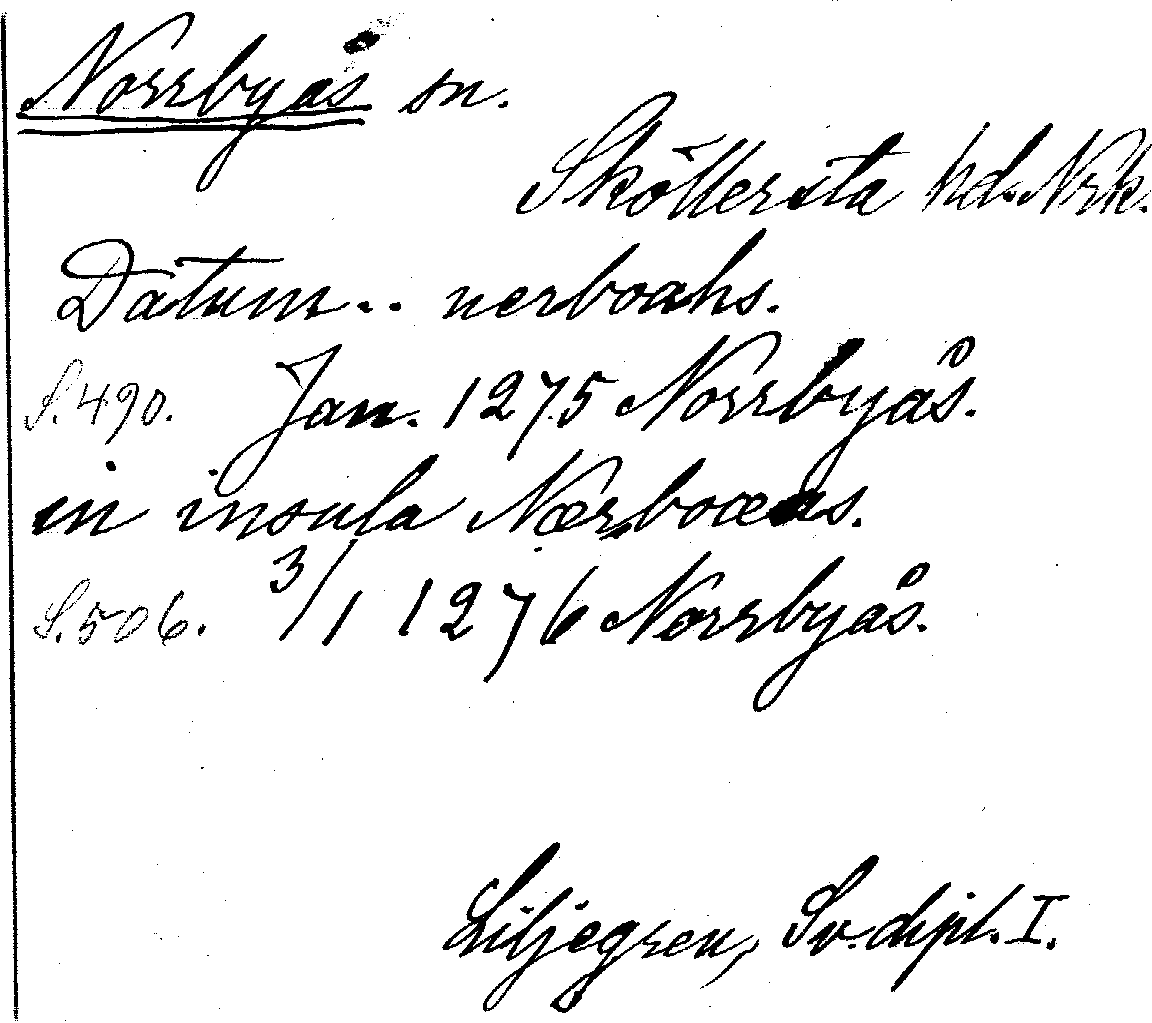 Norrbyås sn.
Sköllersta hd. Nrk.
Datum.. nerboahs.
S. 490. Jan. 1275 Norrbyås.
in insula Nærboæs.
S. 506. 3/1 1276 Norrbyås.
Liljegren, Sv. dipl. I.